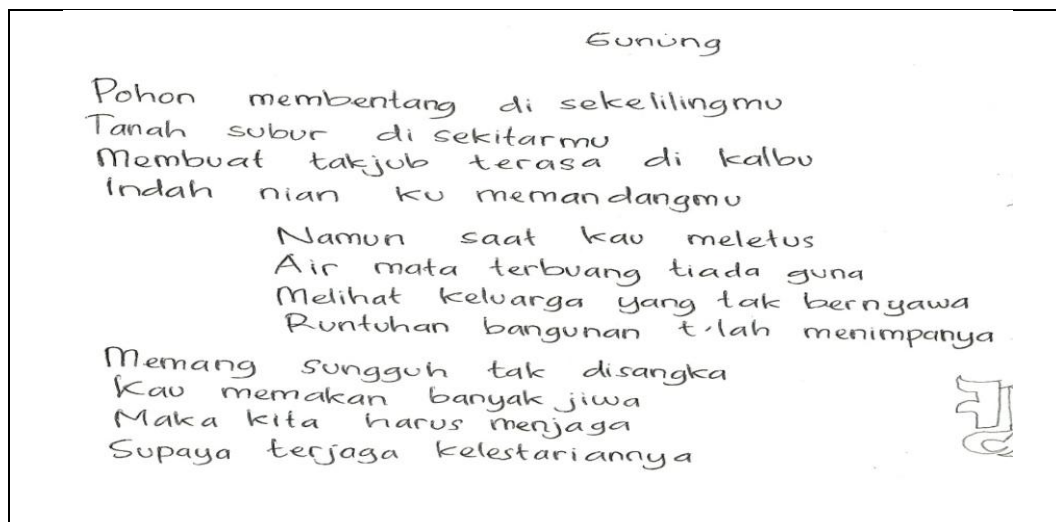 Gunung
Pohon membentang di sekelilingmu
Tanah subur di sekitarmu
Membuat takjub terasa di kalbu
Indah nian ku memandangmu
Namun saat kau meletus
Air mata terbuang tiada guna
Melihat keluarga yang tak bernyawa
Runtuhan bangunan telah menimpanya
Memang sungguh tak disangka
Kau memakan banyak jiwa
Maka kita harus menjaga
Supaya terjaga kelestariannya